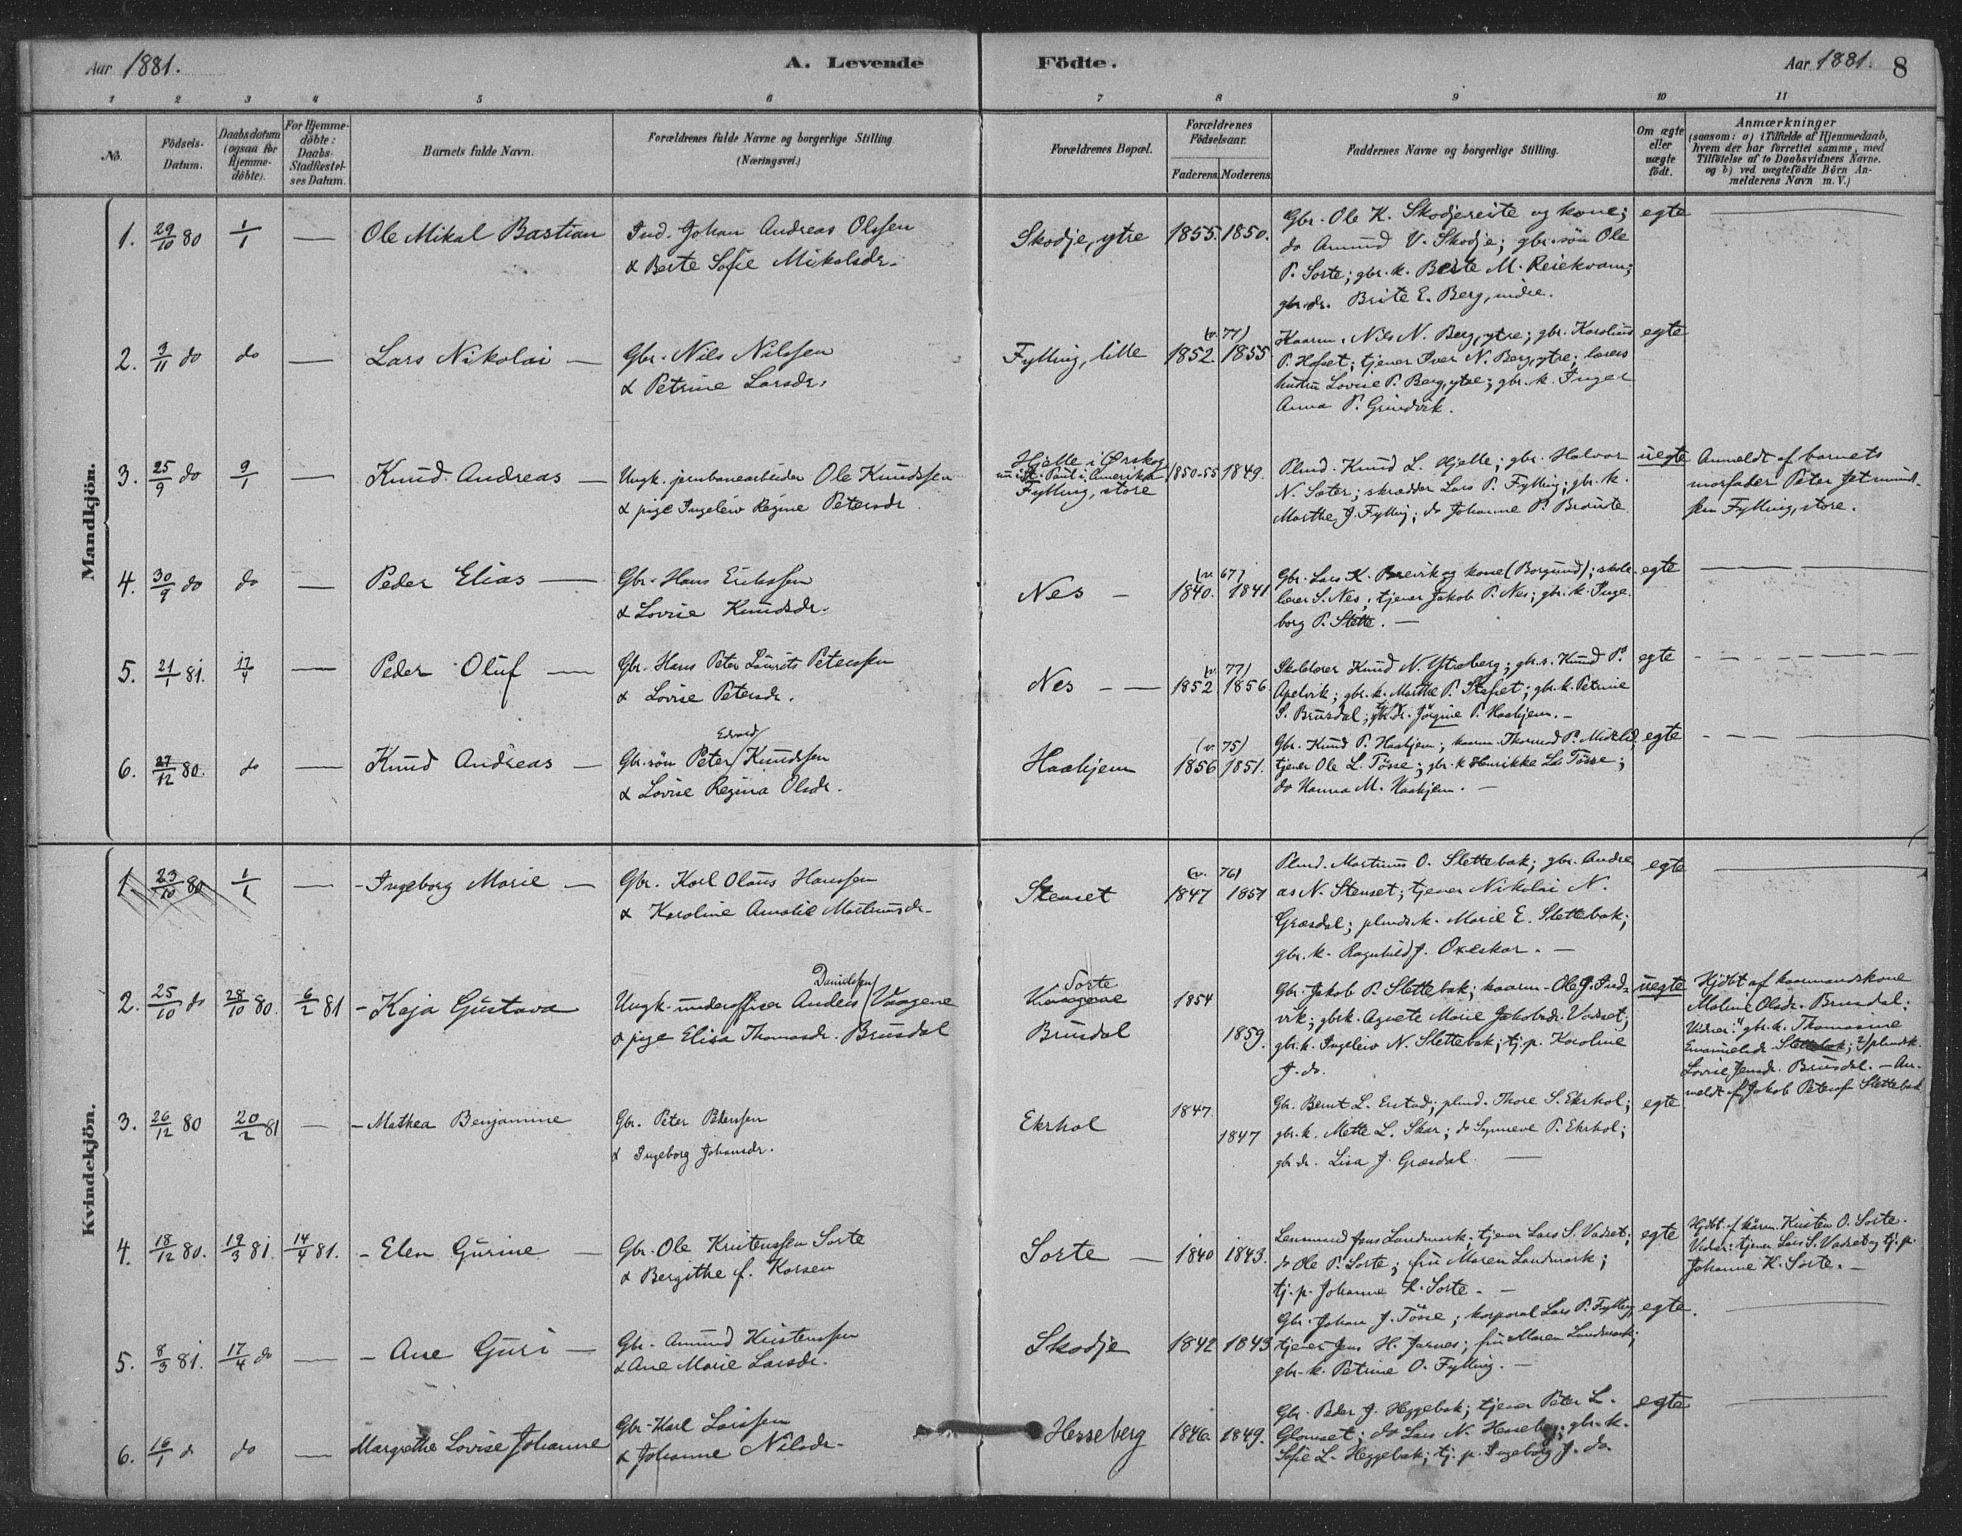 Aar 1881.
A. Levende Födte.
Aar 1881. 8
1 2 3 4 5 6 7 8 9 10 11
No.
Födsels-
Datum.
Daabsdatum
(ogsaa for
Hjemme-
döbte).
For Hjemme-
döbte:
Daabs-
Stadfæstel-
ses Datum.
Barnets fulde Navn.
Forældrenes fulde Navne og borgerlige Stilling.
(Næringsvei.)
Forældrenes Bopæl.
Forældrenes
Födselsaar.
Faderens. Moderens.
Faddernes Navne og borgerlige Stilling.
Om ægte
eller
uægte
födt.
Anmærkninger
(saasom: a) i Tilfælde af Hjemmedaab,
hvem der har forrettet samme, med
Tilföielse af to Daabsvidners Navne.
og b) ved uægtefödte Börn An-
melderens Navn m. V.)
Mandkjön.
1. 29/10 80 1/1 — Ole Mikal Bastian
Ind. Johan Andreas Olssen
& Berte Sofie Mikalsdr.
Skodje, ytre 1855. 1850.
Gbr. Ole K. Skodjereite og kone;
do Amund V. Skodje; gbr.søn Ole
P. Sorte; gbr.k. Berte M. Reiekvam;
gbr.dr. Brite E. Berg, indre.
egte
2. 3/11 do do — Lars Nikolai —
Gbr. Nils Nilssen
& Petrine Larsdr.
Fylling, lille (v. 77) 1852 1855
Kaarm. Nils N. Berg, ytre; gbr. Karolius
P. Hofset; tjener Iver N. Berg, ytre; lærers
hustru Lovise P. Berg, ytre; gbr.k. Inger
Anna P. Grindvik.
egte
3. 25/9 do 9/1 — Knud Andreas —
Ungk. jernbanearbeider Ole Knudssen
& pige Ingeleiv Regine Petersdr.
Hjelle i Ørskog
nu i St. Paul i Amerika
Fylling, store
1850-55 1849.
Plmd. Knud L. Hjelle; gbr. Halvor
N. Sæter; skrædder Lars P. Fylling; gbr.k.
Marthe J. Fylling; do Johanne P. Brauste
uegte
Anmeldt af barnets
morfader Peter Jetmund-
sen Fylling, store.
4. 30/9 do do — Peder Elias —
Gbr. Hans Erikssen
& Lovise Knudsdr.
Nes — (v. 67) 1840. 1841
Gbr. Lars K. Brevik og kone (Borgund); skole-
lærer S. Nes; tjener Jakob P. Nes; gbr.k. Inge-
borg P. Slette. —
egte
5. 21/1 81. 17/4 — Peder Oluf —
Gbr. Hans Peter Laurits Peterssen
& Lovise Petersdr.
Nes — — (v. 77) 1852 1856.
Skolelærer Knud N. Ytreberg; gbr.s. Knud P.
Apelvik; gbr.k. Marthe P. Stenset; gbr.k. Petrine
S. Brusdal; gbr.dr. Jørgine P. Haahjem. —
egte
6. 27/12 80. do — Knud Andreas —
Gbr.søn Peter Edvard Knudssen
& Lovise Regina Olsdr.
Haahjem (v. 75) 1856 1851.
Gbr. Knud P. Haahjem; kaarm. Thomas P. Midtlid;
tjener Ole L. Tösse; gbr.k. Henrikke Ls Tösse;
do Hanna M. Haahjem. —
egte
Kvindekjön.
1. 23/10 80 1/1 — Ingeborg Marie —
Gbr. Karl Olaus Hanssen
& Karoline Amalie Martinusdr.
Stenset (v. 76) 1847 1851
Plmd. Martinus O. Slettebak; gbr. Andre-
as N. Stenset; tjener Nikolai N.
Græsdal; plmds.k. Marie E. Slettebak;
gbr.k. Ragnhild J. Oxeskar. —
egte
2. 25/10 do 28/10 80. 6/2 81 - Kaja Gustava
Ungk. underofficer Anders Danielssen Vaagene
& pige Elisa Thomasdr. Brusdal
Sorte
Vaagene
Brusdal
1854 1859.
Gbr. Jakob P. Slettebak; kaarm. Ole J. Ind-
vik; gbr.k. Agnete Marie Jakobsdr. Vadset;
gbr.k. Ingeleiv N. Slettebak; tj.p. Karoline
J. do.
uegte
Hjdbt af kaarmandskone
Maline Olsdr. Brusdal.
Vidner: gbr.k. Thomasine
Emanuelsdr. Slettebak; 2) plmds.k.
Lovise Jensdr. Brusdal. — An-
meldt af Jakob Peters. Slettebak
3. 26/12 80 20/2 81 — - Mathea Benjamine
Gbr. Peter Peterssen
& Ingeborg Johansdr.
Ekrhol 1847. 1847
Gbr. Bernt L. Erstad; plmd. Thore S. Ekrhol;
gbr.k. Mette L. Skar; do Synneve P. Ekrhol;
gbr.dr. Lisa J. Græsdal —
egte
4. 18/12 80. 19/3 81. 14/4 81. - Elen Gurine —
Gbr. Ole Kristenssen Sorte
& Bergithe f. Korsen
Sorte — 1840 1843.
Lensmand Jens Landmark; tjener Lars S. Vadset;
do Ole P. Sorte; fru Maren Landmark;
tj.p. Johanne K. Sorte. —
egte
Hjdbt. af kaarm. Kristen O. Sorte.
Vidner: tjener Lars S. Vadset og tj.p.
Johanne K. Sorte. —
5. 8/3 81. 17/4 do — - Ane Guri —
Gbr. Amund Kristenssen
& Ane Marie Larsdr.
Skodje 1842 1843
Gbr. Johan J. Tösse; korporal Lars P. Fylling;
tjener Jens H. Jarnes; fru Maren Landmark;
gbr.k. Petrine O. Fylling. —
egte.
6. 16/1 do do — Margrethe Lovise Johanne
Gbr. Karl Larssen
& Johanne Nilsdr.
Hesseberg 1846. 1849.
Gbr. Peder J. Heggebak; tjener Peter L.
Glomset; do Lars N. Hesseberg; gbr.k.
Sofie L. Heggebak; tj.p. Ingeborg J. do.
egte